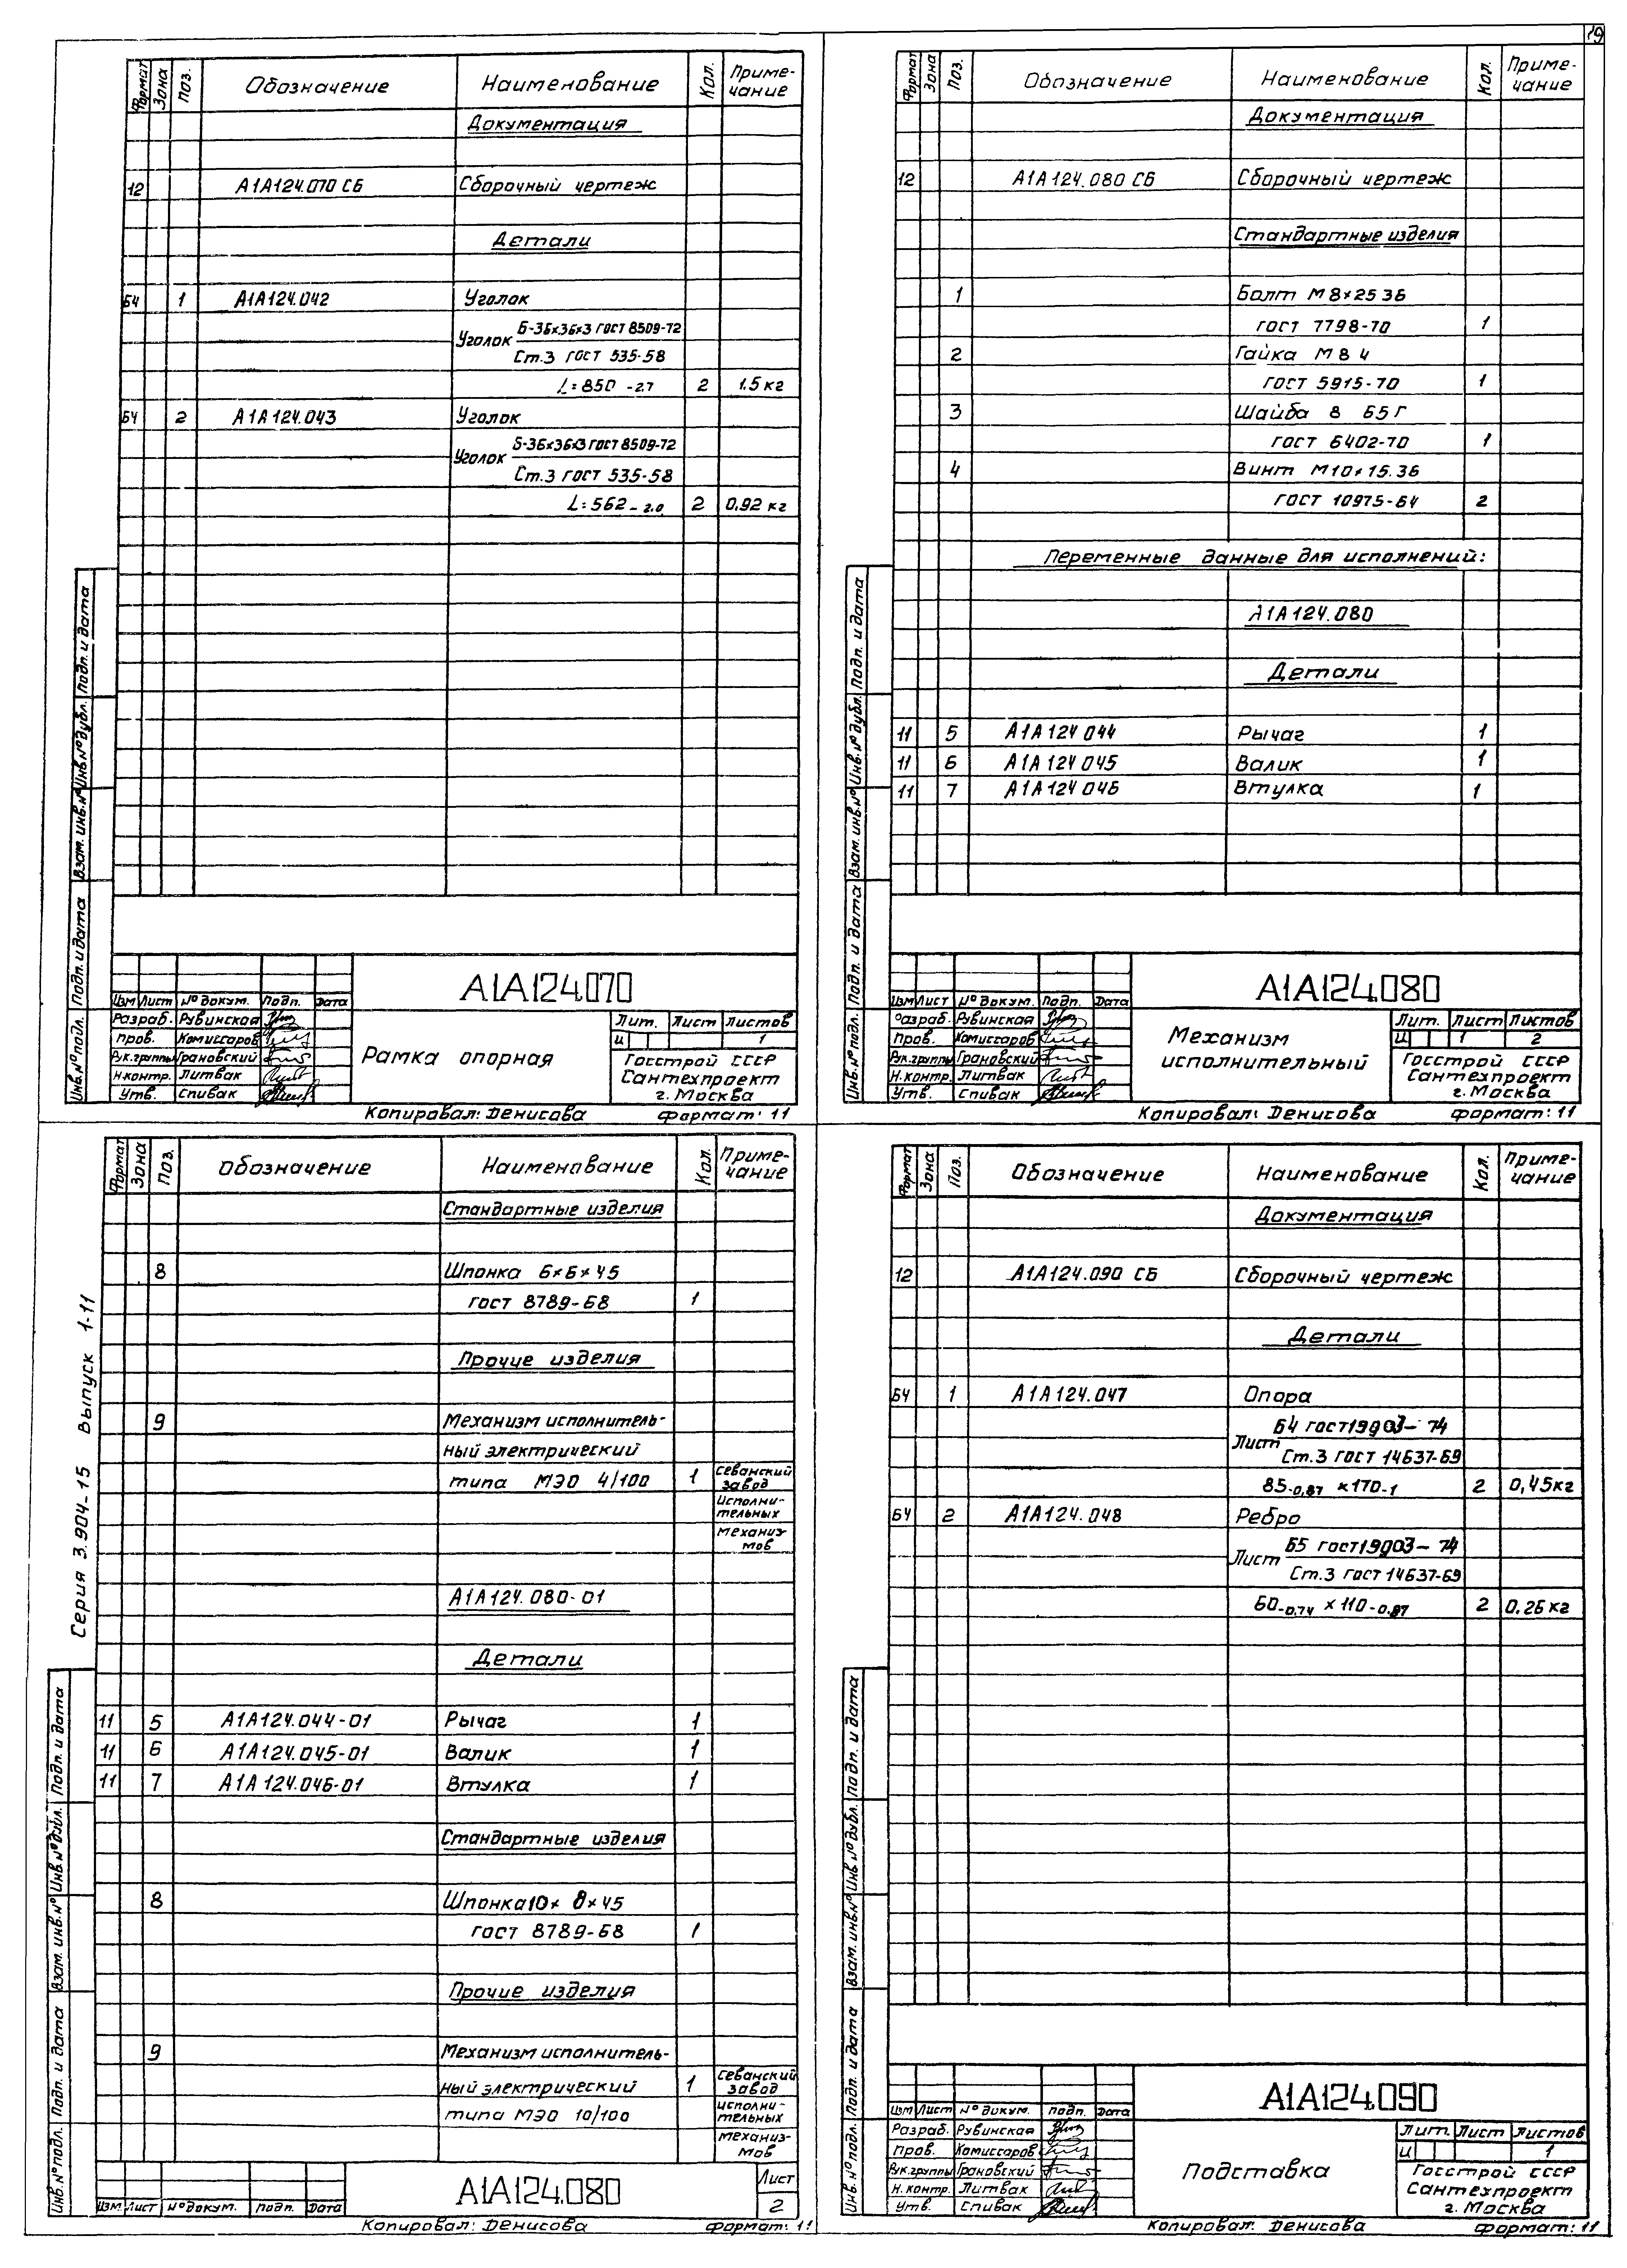 19
Формат Зона Поз. Обозначение Наименование Кол. Приме-
чание
Документация
12 А1А124.070 СБ Сборочный чертеж
Детали
Б4 1 А1А124.042 Уголок
Уголок Б-36х36х3 ГОСТ 8509-72
Ст.3 ГОСТ 535-58
L=850 -2.7 2 1.5 кг
Б4 2 А1А124.043 Уголок
Уголок Б-36х36х3 ГОСТ 8509-72
Ст.3 ГОСТ 535-58
L=562 -2.0 2 0.92 кг
Инв.№ подл. Подп. и дата Взам. инв.№ Инв.№ дубл. Подп. и дата
А1А124.070
Изм Лист № докум. Подп. Дата
Разраб. Рубинская
Пров. Комиссаров
Рук.группы Грановский
Н.контр. Литвак
Утв. Спивак
Рамка опорная
Лит. Лист Листов
И 1
Госстрой СССР
Сантехпроект
г. Москва
Копировал: Денисова Формат: 11
Формат Зона Поз. Обозначение Наименование Кол. Приме-
чание
Документация
12 А1А124.080 СБ Сборочный чертеж
Стандартные изделия
1 Болт М8х25 36
ГОСТ 7798-70 1
2 Гайка М8 4
ГОСТ 5915-70 1
3 Шайба 8 65Г
ГОСТ 6402-70 1
4 Винт М10х15.36
ГОСТ 10975-64 2
Переменные данные для исполнений:
А1А124.080
Детали
11 5 А1А124 044 Рычаг 1
11 6 А1А124 045 Валик 1
11 7 А1А124 046 Втулка 1
Инв.№ подл. Подп. и дата Взам. инв.№ Инв.№ дубл. Подп. и дата
А1А124.080
Изм Лист № докум. Подп. Дата
Разраб. Рубинская
Пров. Комиссаров
Рук.группы Грановский
Н.контр. Литвак
Утв. Спивак
Механизм
исполнительный
Лит. Лист Листов
И 1 2
Госстрой СССР
Сантехпроект
г. Москва
Копировал: Денисова Формат: 11
Серия 3.904-15 Выпуск 1-11
Формат Зона Поз. Обозначение Наименование Кол. Приме-
чание
Стандартные изделия
8 Шпонка 6х6х45
ГОСТ 8789-68 1
Прочие изделия
9 Механизм исполнитель-
ный электрический
типа МЭО 4/100 1 Севанский
завод
исполни-
тельных
механиз-
мов
А1А124.080-01
Детали
11 5 А1А124.044-01 Рычаг 1
11 6 А1А124.045-01 Валик 1
11 7 А1А124.046-01 Втулка 1
Стандартные изделия
8 Шпонка 10х 8х45
ГОСТ 8789-68 1
Прочие изделия
9 Механизм исполнитель-
ный электрический 1 Севанский
завод
типа МЭО 10/100 исполни-
тельных
механиз-
мов
Инв.№ подл. Подп. и дата Взам. инв.№ Инв.№ дубл. Подп. и дата
Изм Лист № докум. Подп. Дата
А1А124.080
Лист
2
Копировал: Денисова Формат: 11
Формат Зона Поз. Обозначение Наименование Кол. Приме-
чание
Документация
12 А1А124.090 СБ Сборочный чертеж
Детали
Б4 1 А1А124.047 Опора
Лист Б4 ГОСТ 19903-74
Ст.3 ГОСТ 14637-69
85-0,87 х170-1 2 0,45кг
Б4 2 А1А124.048 Ребро
Лист Б5 ГОСТ 19903-74
Ст.3 ГОСТ 14637-69
60-0,74 х 110-0,87 2 0.26 кг
Инв.№ подл. Подп. и дата Взам. инв.№ Инв.№ дубл. Подп. и дата
А1А124.090
Изм Лист № докум. Подп. Дата
Разраб. Рубинская
Пров. Комиссаров
Рук.группы Грановский
Н. контр. Литвак
Утв. Спивак
Подставка
Лит. Лист Листов
И 1
Госстрой СССР
Сантехпроект
г. Москва
Копировал: Денисова Формат: 11